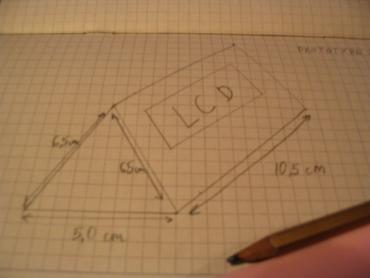 PROTOTYPE
LCD
6,5 cm
6,5 cm
10,5 cm
5,0 cm